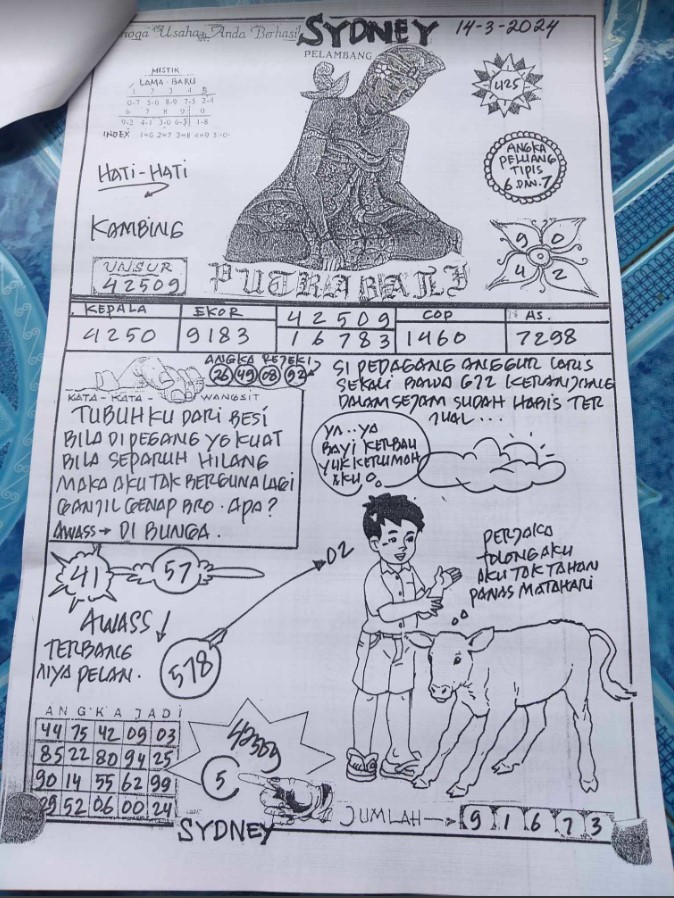 Usaha Anda Berhasil
SYDNEY
14-3-2024
PELAMBANG
MISTIK
LAMA - BARU
1 2 3 4 5
0-7 5-0 8-9 7-5 2-4
6 7 8 9 0
9-2 4-1 3-0 6-3 1-8
INDEX
425
ANGKA
PELUANG
TIPIS
6 DAN 7
HATI-HATI
KAMBING
UNSUR
42509
9 0
4 2
PUTRA BALI
KEPALA EKOR 42509 COP AS.
4250 9183 16783 1460 7298
ANGKA REJEKI
26 49 08 92
KATA - KATA - WANGSIT
TUBUHKU DARI BESI
BILA DIPEGANG YG KUAT
BILA SEPARUH HILANG
MAKA AKU TAK BERGUNA LAGI
GANJIL GENAP BRO. APA?
AWASS → DI BUNGA.
SI PEDAGANG ANGGUR LARIS
SEKALI BAWA 622 KERANJANG
DALAM SEJAM SUDAH HABIS TER
JUAL...
YA..YA
BAYI KERBAU
YUK KERUMAH
AKU
PERJAKA
TOLONG AKU
AKU TAK TAHAN
PANAS MATAHARI
41 57
02
AWASS!
TERBANG
NYA PELAN.
578
ANGKA JADI
44 75 42 09 03
85 22 80 94 25
90 14 55 62 99
29 52 06 00 24
42509
5
SYDNEY
JUMLAH → 9 1 6 7 3